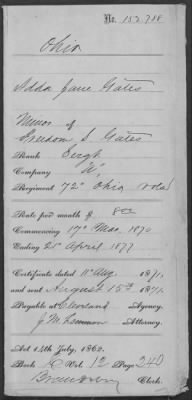 No. 152,718
Ohio
Adda Jane Gates
Minor of
Freedom S. Gates
Rank Sergt
Company "A"
Regiment 72" Ohio Vols
Rate per month $ 8 00
Commencing 17" Mar. 1870
Ending 25" April 1877
Certificate dated 11" Aug. 1871.
and sent August 15th 1871.
Payable at Cleveland Agency.
J. M. Lemmon Attorney.
Act 14th July, 1862.
Book Vol. 12 Page 240
Clerk.